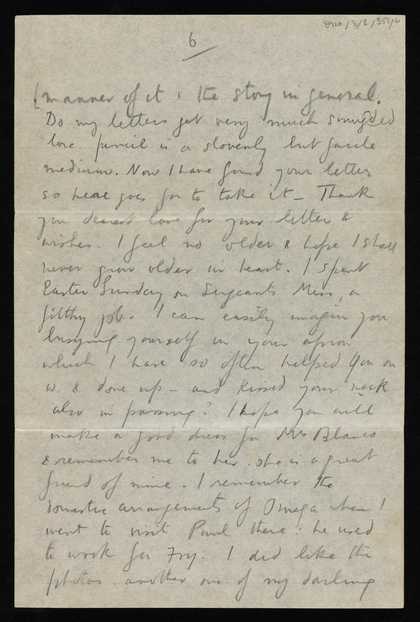 6
(manner of it & the story in general.
Do my letters get very much smudged
love pencil is a slovenly but facile
medium. Now I have found your letter
so here goes for to take it – Thank
you dearest love for your letter &
wishes. I feel no older & hope I shall
never grow older in heart. I spent
Easter Sunday on Sergeants Mess, a
filthy job. I can easily imagine you
busying yourself in your apron
which I have so often helped you on
w. & done up – and kissed your neck
also in passing? I hope you will
make a good dress for Mrs
& remember me to her. she is a great
friend of mine. I remember the
domestic arrangements of Omega when I
went to visit Paul there: he used
to work for Fry. I did like the
photos. another one of my darling